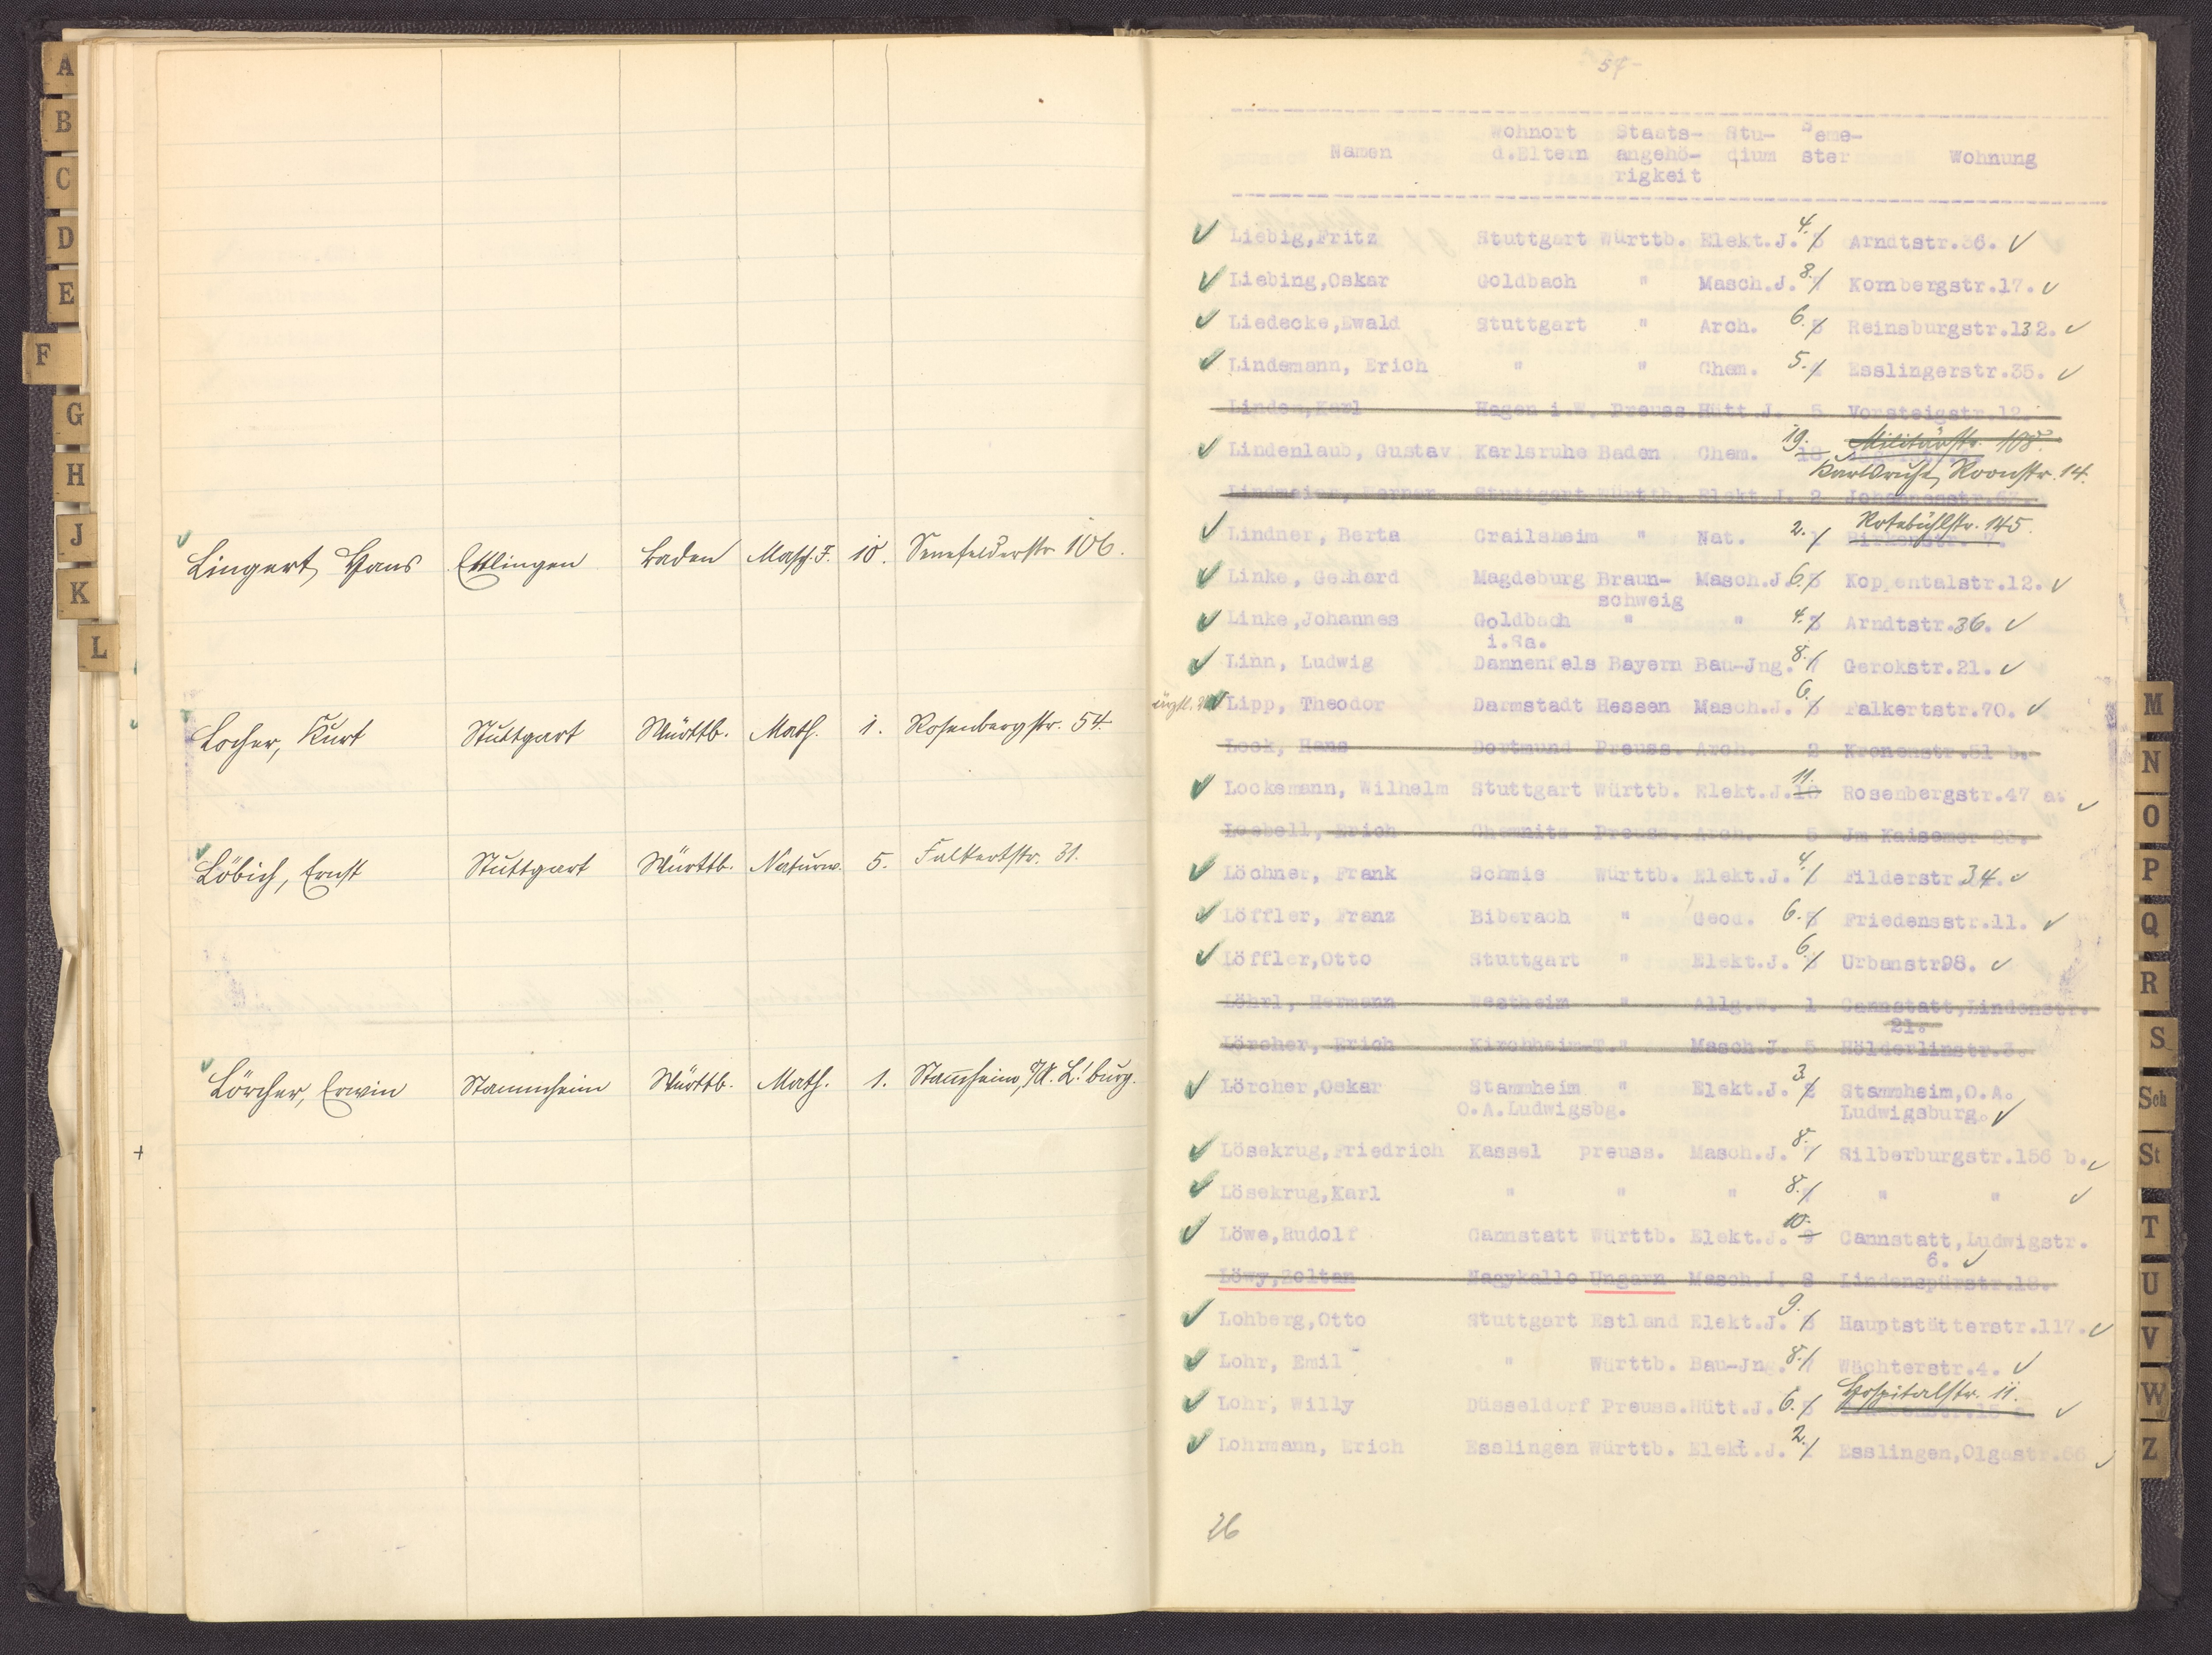 A
B
C
D
E
F
G
H
J
K
L
Lingert, Hans Ettlingen Baden Masch.J. 10. Senefelderstr. 106.
Locher, Kurt Stuttgart Württb. Math. 1. Rosenbergstr. 54.
Löbich, Ernst Stuttgart Württb. Naturw. 5. Falkertstr. 31.
Lörcher, Erwin Stammheim Württb. Math. 1. Stam̅heim, O/A. L.burg.
54-
Namen Wohnort d.Eltern Staats-angehö-rigkeit Stu-dium Seme-ster Wohnung
✓ Liebig,Fritz Stuttgart Württb. Elekt.J. 4. Arndtstr.36. ✓
✓ Liebing,Oskar Goldbach " Masch.J. 8. Kornbergstr.17. ✓
✓ Liedecke,Ewald Stuttgart " Arch. 6. 5 Reinsburgstr.132. ✓
✓ Lindemann, Erich " " Chem. 5. 4 Esslingerstr.35. ✓
Linden,Karl Hagen i.W. Preuss. Hütt.J. 5 Vorsteigstr.12.
Militärstr. 108.
✓ Lindenlaub, Gustav Karlsruhe Baden Chem. 19. 18
Karlsruhe, Roonstr. 14.
Lindmeier, Werner Stuttgart Württb. Elekt.J. 2 Johannesstr.
Rotebühlstr. 145.
✓ Lindner, Berta Crailsheim " Nat. 2. 1 Birkenstr. 7.
✓ Linke, Gerhard Magdeburg Braun- Masch.J. 6. 5 Koppentalstr.12. ✓
schweig
✓ Linke,Johannes Goldbach " " 4. 3 Arndtstr.36. ✓
i.Sa.
✓ Linn, Ludwig Dannenfels Bayern Bau-Jng. 8. 7 Gerokstr.21. ✓
✓ Lipp, Theodor Darmstadt Hessen Masch.J. 6. 5 Falkertstr.70. ✓
Lock, Hans Dortmund Preuss. Arch. 2 Kronenstr.51 b.
✓ Lockemann, Wilhelm Stuttgart Württb. Elekt.J. 11. 10 Rosenbergstr.47 a. ✓
Loebell, Erich Chemnitz Preuss. Arch. 5 Jm Kaisemer 23.
✓ Löchner, Frank Schmie Württb. Elekt.J. 4. Filderstr.34. ✓
✓ Löffler, Franz Biberach " Geod. 6. 5 Friedensstr.11. ✓
✓ Löffler,Otto Stuttgart " Elekt.J. 6. 5 Urbanstr98. ✓
Löhrl, Hermann Westheim " Allg.W. 1 Cannstatt,Lindenstr.
21.
Lörcher, Erich Kirchheim-T. " Masch.J. 5 Hölderlinstr.3.
✓ Lörcher,Oskar Stammheim " Elekt.J. 3. 2 Stammheim,O.A.
O.A.Ludwigsbg. Ludwigsburg. ✓
✓ Lösekrug,Friedrich Kassel preuss. Masch.J. 8. 7 Silberburgstr.156 b. ✓
✓ Lösekrug,Karl " " " 8. 7 " " ✓
✓ Löwe,Rudolf Cannstatt Württb. Elekt.J. 10. 9 Cannstatt,Ludwigstr.
6. ✓
Löwy,Zoltan Nagykallo Ungarn Masch.J. 8 Lindenspürstr.18.
✓ Lohberg,Otto Stuttgart Estland Elekt.J. 9. 8 Hauptstätterstr.117. ✓
✓ Lohr, Emil " Württb. Bau-Jng. 8. 7 Wächterstr.4. ✓
Hospitalstr. 11.
✓ Lohr, Willy Düsseldorf Preuss. Hütt.J. 6. 5 ✓
✓ Lohrmann, Erich Esslingen Württb. Elekt.J. 2. 1 Esslingen,Olgastr.66 ✓
26
M
N
O
P
Q
R
S
Sch
St
T
U
V
W
Z